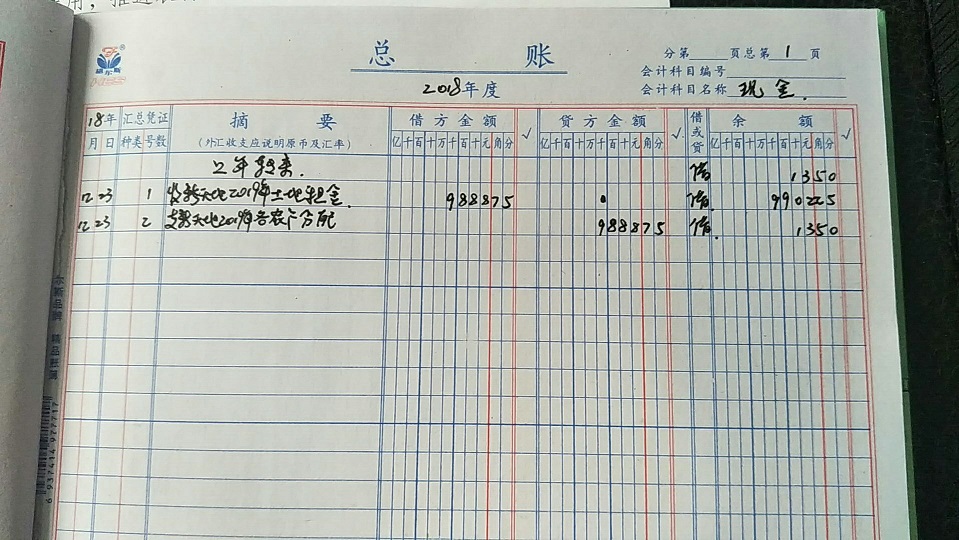 总 账
2018年度
分第 页总第 1 页
会计科目编号
会计科目名称 现金.
18年 汇总凭证 摘 要 借方金额 √ 贷方金额 √ 借或贷 余 额 √
月 日 种类 号数 (外汇收支应说明原币及汇率) 亿千百十万千百十元角分 亿千百十万千百十元角分 亿千百十万千百十元角分
上年转来. 借 1350
12 23 1 收 天地2019年土地租金. 988875 借. 990225
12 23 2 支 天地2019年各农户分配 988875 借. 1350
6 937414 977717